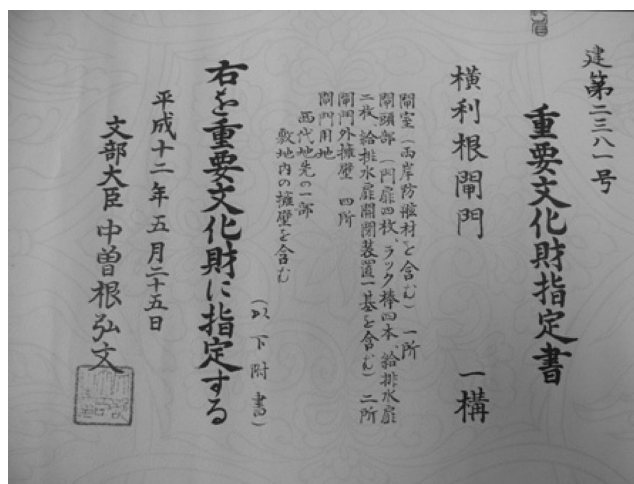 建第二三八一号
重要文化財指定書
横利根閘門 一構
閘室(両岸防舷材を含む) 一所
閘頭部(門扉四枚、ラック棒四本、給排水扉
二枚、給排水扉開閉装置一基を含む) 二所
閘門外擁壁 四所
閘門用地
西代地先の一部
敷地内の擁壁を含む
(以下附書)
右を重要文化財に指定する
平成十二年五月二十五日
文部大臣 中曽根弘文